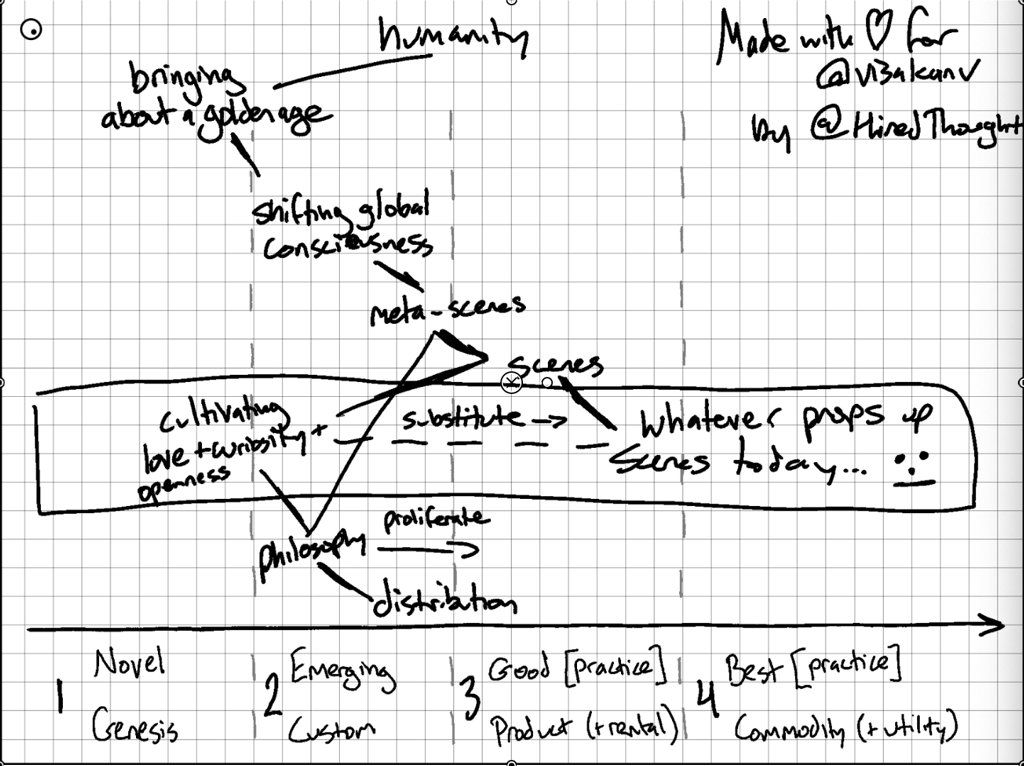 humanity
Made with ♡ for
@vi3akanv
by @HiredThought
bringing
about a golden age
shifting global
consciousness
meta-scenes
scenes
cultivating
love + curiosity +
openness
substitute →
Whatever props up
scenes today...
philosophy
proliferate
distribution
1
Novel
Genesis
2
Emerging
Custom
3
Good [practice]
Product (+rental)
4
Best [practice]
Commodity (+utility)